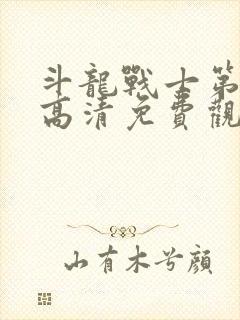 斗龍戰士第
高清免費觀
山有木兮顔